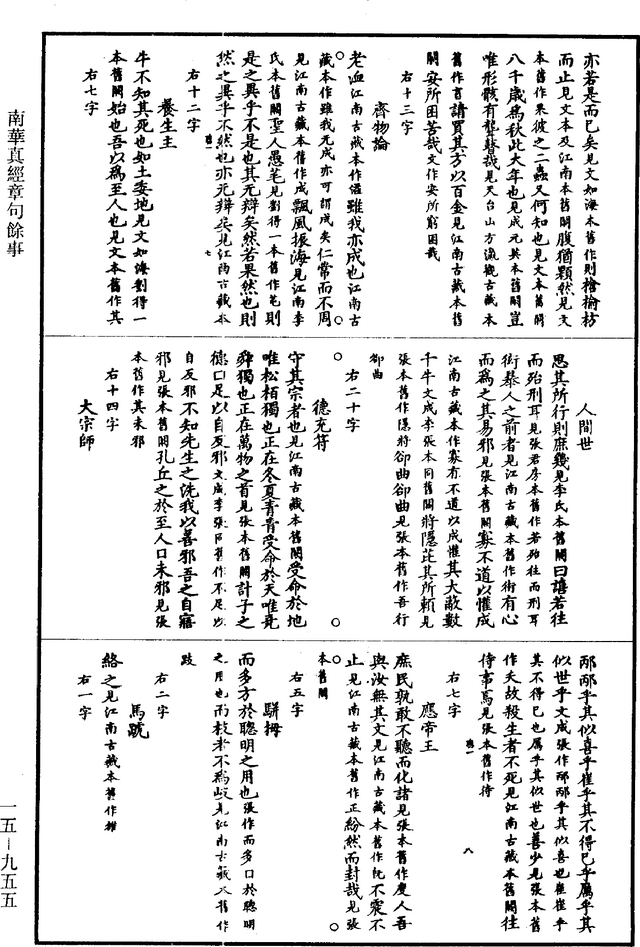 南華真經章句餘事
亦若是而已矣見文如海本舊作則槍榆枋
而止見文本及江南本舊闕腹猶顆然見文
本舊作果彼之二蟲又何知也見文本舊闕
八千歲為秋此大年也見成元英本舊闕豈
唯形骸有聾瞽哉見天台山方瀛觀古藏本
舊作盲請買其方以百金見江南古藏本舊
闕安所困苦哉文作安所窮困哉
右十三字
齊物論
老洫江南古藏本作溢雖我亦成也江南古
藏本作雖我无成亦可謂成矣仁常而不周
見江南古藏本舊作成飄風振海見江南李
氏本舊闕聖人愚芚見劉得一本舊作芚則
是之異乎不是也其无辯矣然若果然也則
然之異乎不然也亦无辯矣見江南古藏本
七
右十二字
養生主
牛不知其死也如土委地見文如海劉得一
本舊闕始也吾以為至人也見文本舊作其
右七字
人間世
思其所行則庶幾見李氏本舊闕曰譆若往
而殆刑耳見張君房本舊作若殆往而刑耳
衒暴人之前者見江南古藏本舊作術有心
而為之其易邪見張本舊闕寡不道以懽成
江南古藏本作寡有不道以成懽其大蔽數
千牛文成李張本同舊闕將隱芘其所賴見
張本舊作隱將卻曲卻曲見張本舊作吾行
卻曲
右二十字
德充符
守其宗者也見江南古藏本舊闕受命於地
唯松柏獨也正在冬夏青青受命於天唯堯
舜獨也正在萬物之首見張本舊闕計子之
德口足以自反邪文成李張同舊作不足以
自反邪不知先生之洗我以善邪吾之自寤
邪見張本舊闕孔丘之於至人口未邪見張
本舊作其未邪
右十四字
大宗師
邴邴乎其似喜乎崔乎其不得已乎厲乎其
似世乎文成張作邴邴乎其似喜也崔崔乎
其不得已也厲乎其似世也善少見張本舊
作夭故殺生者不死見江南古藏本舊闕往
侍事焉見張本舊作待
右七字
八
應帝王
庶民孰敢不聽而化諸見張本舊作度人吾
與汝無其文見江南古藏本舊作既不震不
止見江南古藏本舊作正紛然而封哉見張
本舊闕
右五字
駢拇
而多方於聰明之用也張作而多口於聰明
之用也而枝者不為歧見江南古藏本舊作
跂
右二字
馬蹏
絡之見江南古藏本舊作雒
右一字
一五—九五五